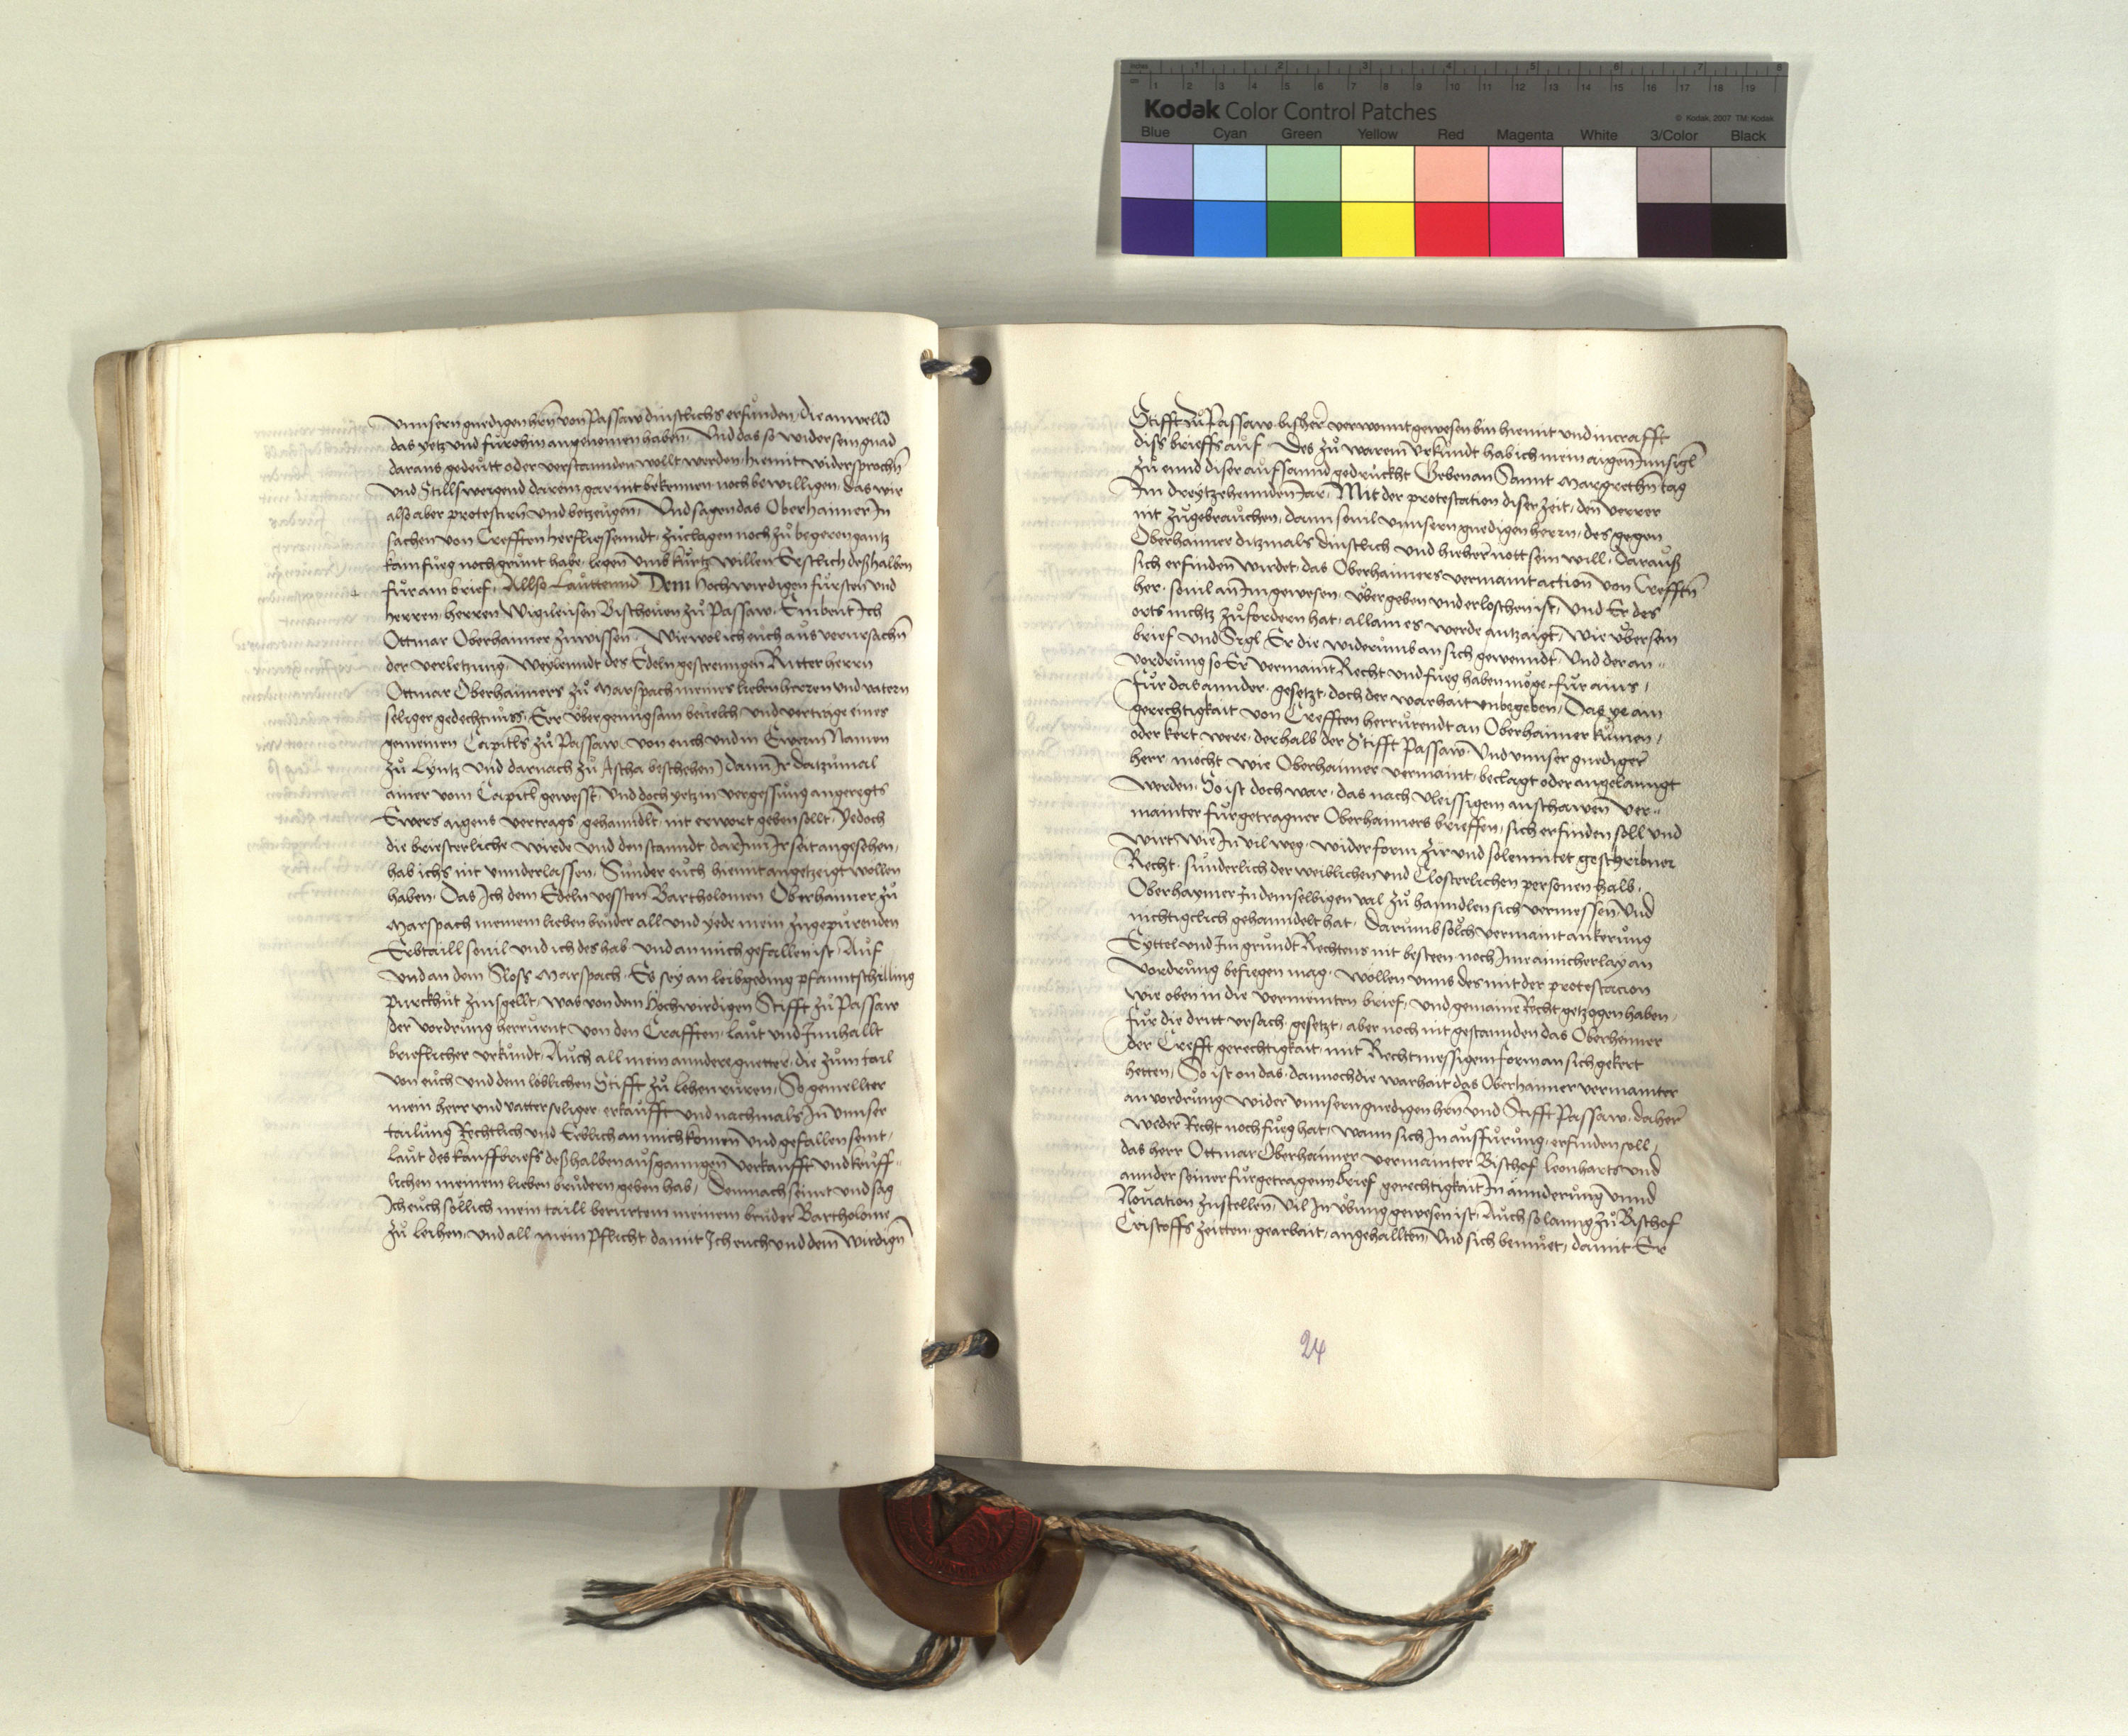 vnnsern gnedigen hrn von Passaw dinstlichs erfunden, die anwelld
das yetz vnd furohin angenomen haben, Vnd das so wider sein gnad
daraus gedeutt oder verstannden wollt werden, hiemit widersprochn
vnd Stillsweigend darein gar nit bekennen noch bewilligen, das wir
also aber protestirn vnd betzeugen, Vnd sagen das Oberhaimer In
sachen von Crefften herfliessenndt, zuclagen noch zu begeren gantz
kain fueg noch grunt habe, legen vmb kurtz willen Erstlich deßhalben
fur ain brief, Allso Lauttennd Dem hochwirdigen fursten vnd
herren, herren Wigileusen Bischouen zu Passaw, Embeut Ich
Ottmar Oberhaimer zuwissen, Wiewol ich euch aus verursachn
der verletzung, Weylenndt des Edeln gestrenngen Ritter herrn
Ottmar Oberhaimers zu Marspach meines lieben herren vnd vatern
seliger gedechtnuss, Err vbergenugsam beuelch, vnd vertrage eines
gemeinen Capitls zu Passaw, von euch vnd in Ewerm Namen
zu Lyntz vnd darnach zu Ascha beschehen, dann Ir datzumal
ainer vom Capitl gewesst, Vnd doch yetz in vergessung angeregts
Ewers aigens vertrags, gehanndlt, nit erwort geben sollt, Yedoch
die briesterliche wirde vnd den stanndt, darInn Ir seit angesehen,
hab ichs nit vnnderlassen, Sunder euch hiemit angetzeigt wollen
haben, Das Ich dem Edeln vessten Bartholomeen Oberhaimer zu
Marspach meinem lieben bruder all vnd yede mein zugepurenden
Erbtaill souil vnd ich des hab vnd an mich gefallen ist, Auf
vnd an dem Sloss Marspach, Es sey an leibgeding pfanntschilling
purckhut zinsgellt, was von dem hochwirdigen Stifft zu Passaw
der vordrung herrurnt von den Crafften, laut vnd Innhallt
brieflicher vrkundt, Auch all mein anndere guetter, die zum tail
von euch vnd dem loblichen Stifft zu lehen ruren, So gemellter
mein herr vnd vatter seliger erkaufft vnd nachmals In vnnser
tailung Rechtlich vnd Erblich an mich komen vnd gefallen seint,
laut des kauffbriefs deßhalben ausganngen verkaufft vnd keuff-
lichen meinem lieben brudern geben hab, Demnach seinnt vnd sag
Ich euch sollich mein taill berurtem meinem bruder Bartholome
zu leihen, vnd all mein pflicht damit Ich euch vnd dem wirdign
Stifft zu Passaw bisher verwonnt gewesen bin hiemit vnd in crafft
diss brieffs auf, Des zu warem vrkundt hab ich mein aigen Innsigl
zu ennd diser aufsannd gedruckht Geben an Sannt Margrethn tag
Im dreytzehennden Jar, Mit der protestation diser zeit, den verrer
nit zugebrauchen, dann souil vnnsern gnedigen herrn, des gegen
Oberhaimer ditzmals dinstlich vnd hieher nott sein will, Darauß
sich erfinden wirdet, das Oberhaimers vermaint action von Crefftn
her, souil an Im gewesen, vbergeben vnd erloschen ist, vnd Er des
orts nichtz zufordern hat, allain es werde antzaigt, wie vber sein
brief vnd Sigl Er die widerumb an sich gewenndt, Vnd der an-
vordrung so Er vermaint Recht vnd fueg haben moge, fur ains,
fur das annder, gesetzt, doch der warhait vnbegeben, Das ye ain
gerechtigkait von Crefften herrurendt an Oberhaimer kumen,
oder kert were, derhalb der Stifft Passaw, Vnd vnnser gnediger
herr, mocht wie Oberhaimer vermaint, beclagt oder angelanngt
werden, So ist doch war, das nach vleissigem anschawen ver-
mainter furgetragner Oberhaimers brieffen, sich erfinden soll vnd
wirt, wie In vil weg, wider form zir vnd solennitet geschribner
Recht, sunderlich der weiblichen vnd Closterlichen personen halb,
Oberhaymer In demselbigen val zu hanndlen sich vermessen, Vnd
nichtigclich gehanndelt hat, Darumb solch vermaint ankerung
Eyttel vnd Im grundt Rechtens nit besteen noch Im ainicherlay an
vordrung befiegen mag, wollen vnns des mit der protestacion
wie oben in die vermeinten brief, vnd gemaine Recht getzogen haben,
fur die dritt vrsach, gesetzt, aber noch nit gestannden das Oberhaimer
der Crefft gerechtigkait, mit Rechtmessigem form an sich gekert
hetten, So ist on das, dannoch die warhait das Oberhaimer vermainter
anvordrung wider vnnsern gnedigen hrn vnd Stifft Passaw, daher
weder Recht noch fueg hat, wann sich In ausfurung, erfinden soll,
das herr Ottmar Oberhaimer vermainter Bischof Leonharts vnd
annder seiner furgetragenn brief gerechtigkait In annderung vnnd
Nouation zustellen, vil In vbung gewesen ist, Auch so lanng zu Bischof
Cristoffs zeitten, gearbait, angehallten, Vnd sich bemuet, damit Er
24
Kodak Color Control Patches
© Kodak, 2007 TM: Kodak
Blue Cyan Green Yellow Red Magenta White 3/Color Black